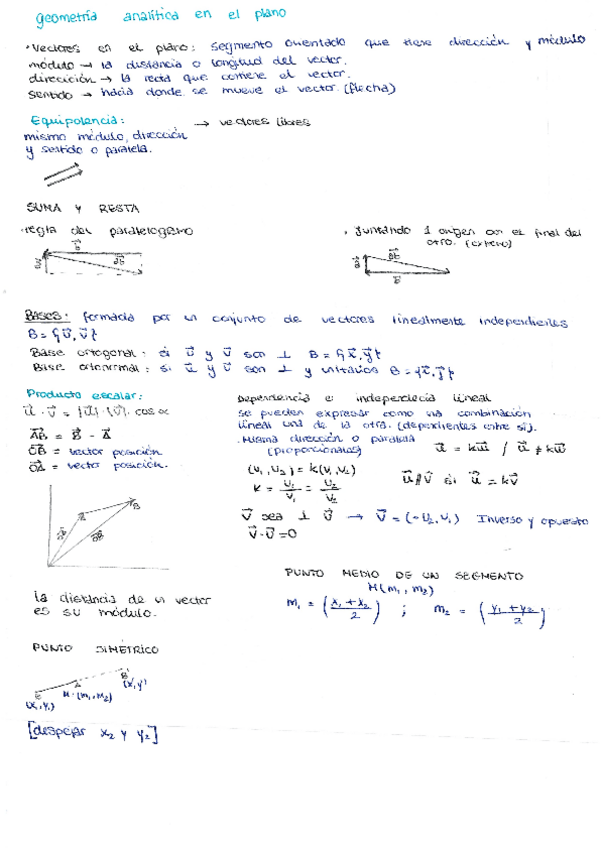 geometría analítica en el plano
· Vectores en el plano: segmento orientado que tiene dirección y módulo
módulo → la distancia o longitud del vector.
dirección → la recta que contiene al vector.
sentido → hacia donde se mueve el vector. (flecha)
Equipolencia: → vectores libres
mismo módulo, dirección
y sentido o paralela.
SUMA Y RESTA
·regla del paralelogramo
· Juntando 1 origen con el final del
otro. (extremo)
Bases: formada por un conjunto de vectores linealmente independientes
B = {u⃗, v⃗}
Base ortogonal: si u⃗ y v⃗ son ⊥ B = {x⃗, y⃗}
Base ortonormal: si u⃗ y v⃗ son ⊥ y unitarios B = {x⃗, y⃗}
Producto escalar:
u⃗ · v⃗ = |u⃗| · |v⃗| · cos α
AB⃗ = B⃗ - A⃗
OB⃗ = vector posición
OA⃗ = vector posición.
Dependencia e independencia lineal
se pueden expresar como una combinación
lineal una de la otra. (dependientes entre sí).
· Misma dirección o paralela
(proporcionales) u⃗ = kw⃗ / u⃗ ≠ kw⃗
(u₁, u₂) = k(v₁, v₂) u⃗ ∥ v⃗ si u⃗ = kv⃗
k = u₁/v₁ = u₂/v₂
v⃗ sea ⊥ u⃗ → v⃗ = (-u₂, u₁) Inverso y opuesto
v⃗ · u⃗ = 0
A
B
la distancia de un vector
es su módulo.
PUNTO MEDIO DE UN SEGMENTO
M(m₁, m₂)
m₁ = (x₁ + x₂ / 2) ; m₂ = (y₁ + y₂ / 2)
PUNTO SIMÉTRICO
B'
(x', y')
M · (m₁, m₂)
(x₁, y₁)
[despejar x₂ y y₂]